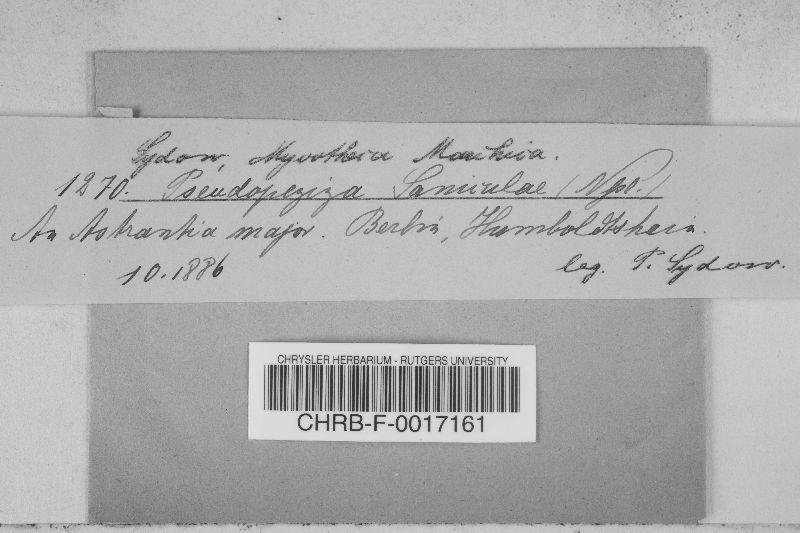 Sydow, Mycotheca Marchica.
1270. Pseudopeziza Saniculae (Npl.)
An Astrantia major. Berlin, Humboldtshain.
10.1886 leg. P. Sydow.
CHRYSLER HERBARIUM - RUTGERS UNIVERSITY
CHRB-F-0017161